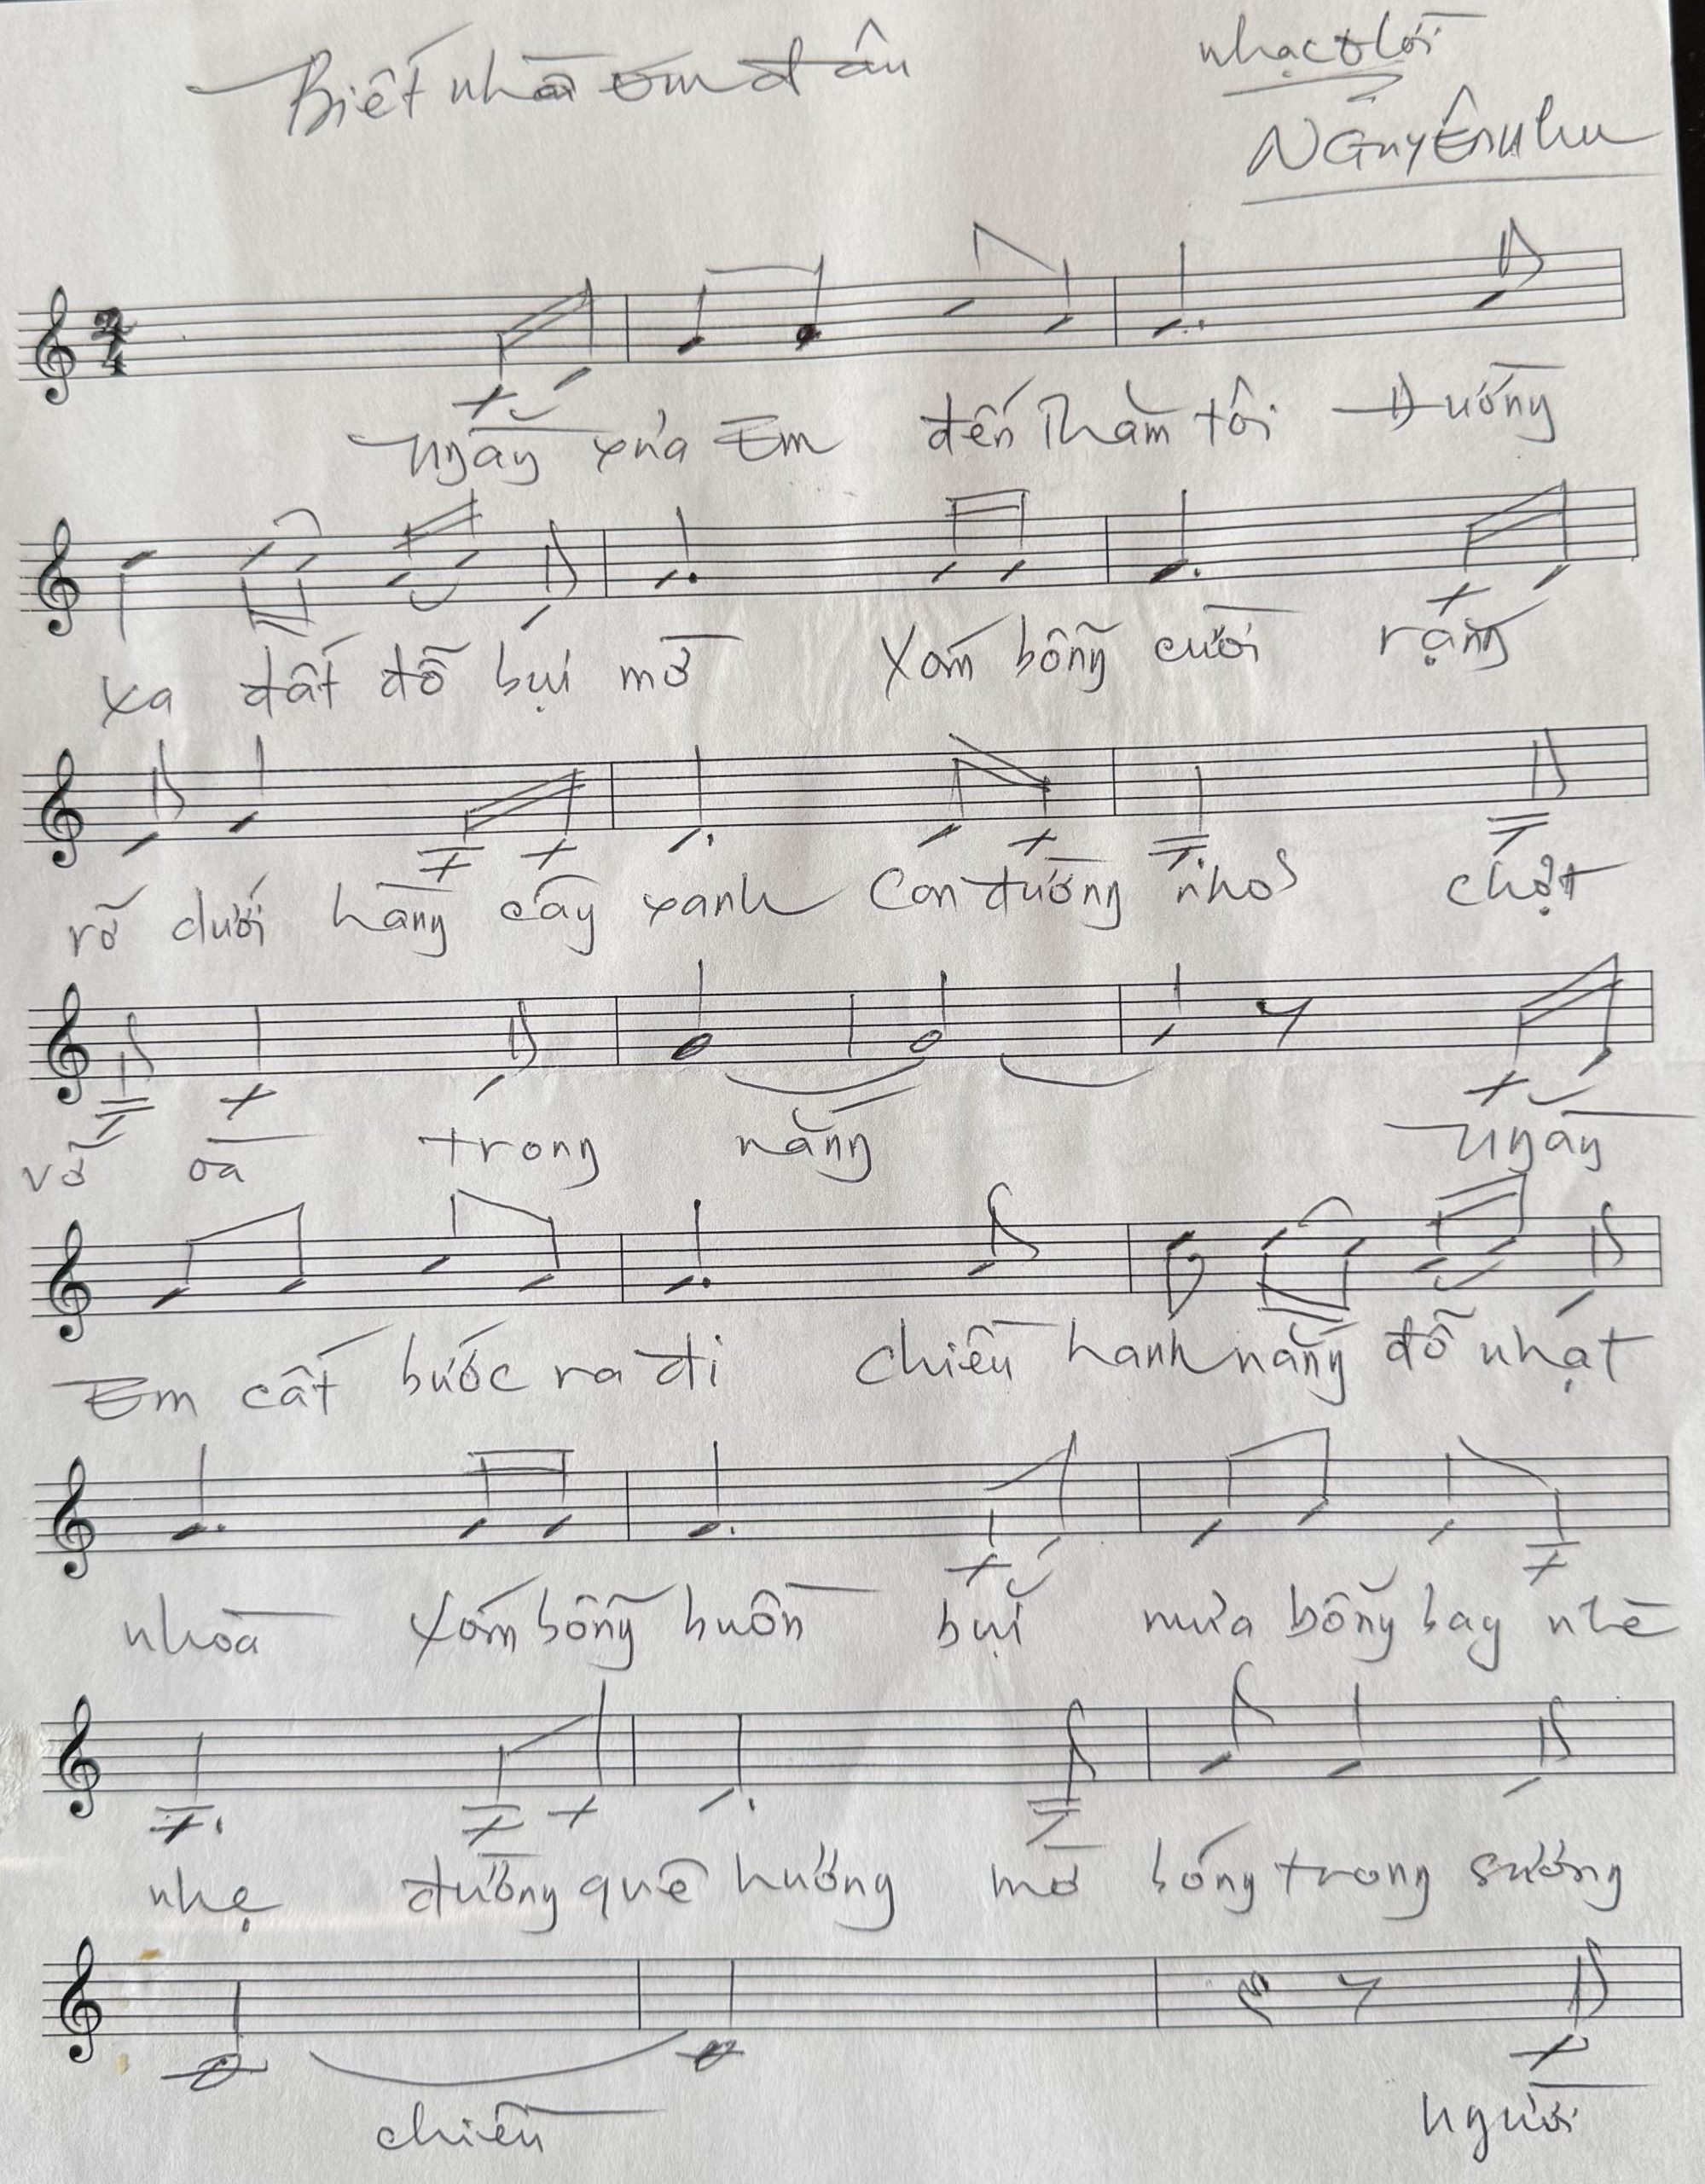 Biết nhà em đâu
nhạc & lời
Nguyên Thu
2/4
Ngày xưa Em đến thăm tôi Đường
xa đất đỗ bụi mờ Xóm bỗng cười rạng
rỡ dưới hàng cây xanh Con đường nhỏ chợt
vỡ oà trong nắng Ngày
Em cất bước ra đi chiều hanh nắng đỗ nhạt
nhoà Xóm bỗng buồn bụi mưa bỗng bay nhè
nhẹ đường quê hương mờ bóng trong sương
chiều người